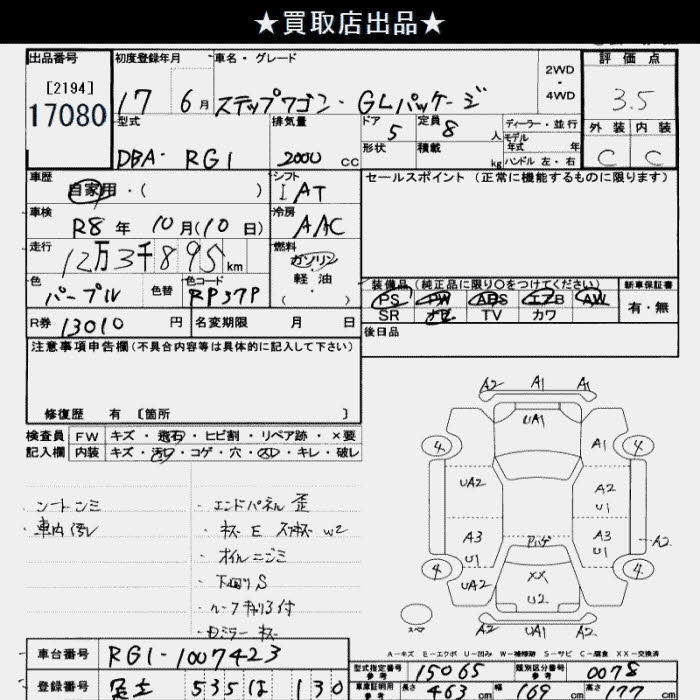 ★買取店出品★
出品番号 初度登録年月 車名・グレード 2WD・4WD 評価点
[2194]
17080 17 6月 ステップワゴン・GLパッケージ 3.5
型式 排気量 ドア 定員 ディーラー・並行 外装 内装
DBA-RG1 2000 cc 5 8人 モデル年式 年 C C
形状 積載 kg ハンドル 左・右
車歴 シフト セールスポイント (正常に機能するものに限ります)
自家用・( ) IAT
車検 冷房
R8年 10月(10日) AAC
走行 燃料
12万3千895km ガソリン
軽油
・( )
色 色替 色コード 装備品 (純正品に限り○をつけてください) 新車保証書
パープル RP37P PS PW ABS エアB AW 有・無
SR ナビ TV カワ
R券 13010円 名変期限 月 日 後日品
注意事項申告欄(不具合内容等は具体的に記入して下さい)
修復歴 有 [箇所 ]
検査員 FW キズ・飛石・ヒビ割・リペア跡・×要
記入欄 内装 キズ・汚れ・コゲ・穴・スレ・キレ・破レ
シートシミ
車内汚レ
・エンドパネル 歪
・オイルニジミ
・下回りS
A2 A1 A1
UA1
4 A1 4
UA2 A2
U1
A3 A3 A2
U1 U1
4 4
UA2 XX
U2
UA1 A2
A-キズ E-エクボ U-凹み W-補修跡 S-サビ C-腐食 XX-交換済
車台番号 RG1-1007423
型式指定番号 参考 15065 類別区分番号 参考 0078
登録番号 535 は 130
車庫証明用 参考 長さ 463 cm 幅 169 cm 高さ 177 cm